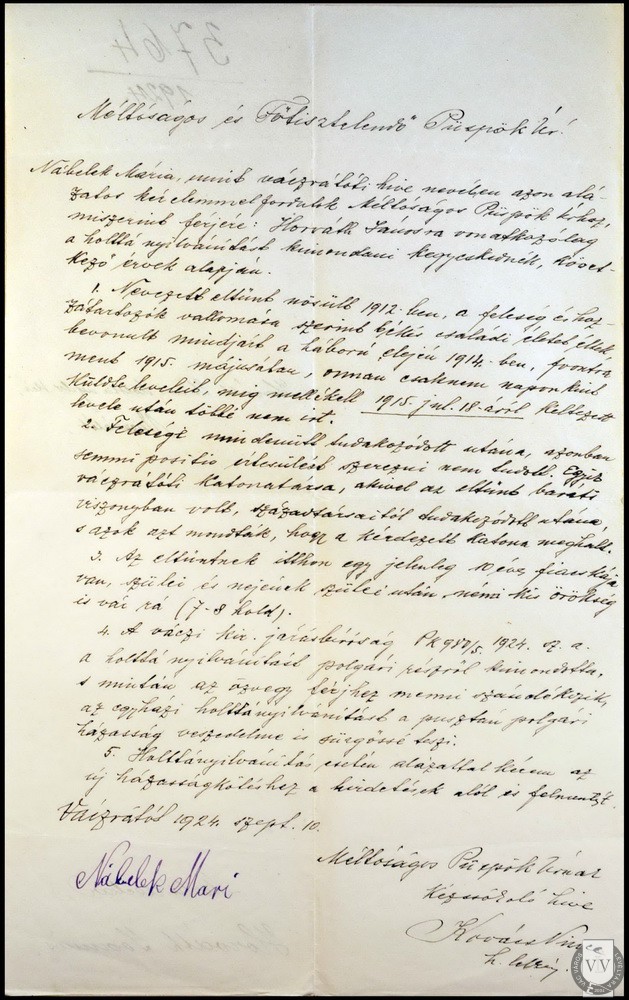 3764
1924
Méltóságos és Főtisztelendő Püspök Úr!
Nábelek Mária, mint váczrátóti hive nevében azon alá-
zatos kérelemmel fordulok Méltóságos Püspök Úrhoz,
miszerint férjére: Horváth Jánosra vonatkozólag
a holttá nyilvánitást kimondani kegyeskednék, követ-
kező érvek alapján.
1. Nevezett eltünt nősült 1912-ben, a feleség és hoz-
zátartozók vallomása szerint békés családi életet éltek,
bevonult mindjárt a háború elején 1914-ben, frontra
ment 1915. májusában, onnan csaknem naponkint
küldte leveleit, mig mellékelt 1915. jul. 18-áról keltezett
levele után többé nem irt.
2. Felesége mindenütt tudakozódott utána, azonban
semmi positiv értesülést szerezni nem tudott, Egyik
váczrátóti katonatársa, akivel az eltünt baráti
viszonyban volt, századtársaitól tudakozódott utána,
s azok azt mondták, hogy a kérdezett katona meghalt.
3. Az eltüntnek itthon egy jelenleg 10 éves fiacskája
van, szülei és nejének szülei után némi kis örökség
is vár rá (7-8 hold).
4. A váczi kir. járásbiróság Pk 980/5. 1924. sz. a.
a holttá nyilvánitást polgári részről kimondotta,
s miután az özvegy férjhez menni szándékozik,
az egyházi holttányilvánitást a pusztán polgári
házasság veszedelme is sürgőssé teszi.
5. Holttányilvánitás esetén alázattal kérem az
új házasságkötéshez a hirdetések alól is felmentését.
Váczrátót 1924. szept. 10.
Méltóságos Püspök Úrnak
kézcsókoló hive
Nábelek Mari
Kovács
h. lelkész.
VV